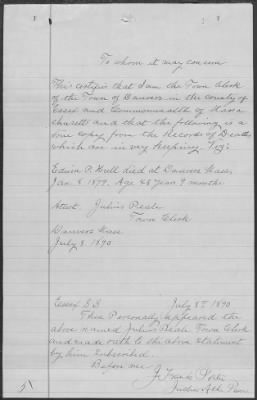 To whom it may concern
This certifies that I am the Town Clerk
of the Town of Danvers in the county of
Essex and Commonwealth of Massa
chusetts and that the following is a
true copy from the Records of Deaths
which are in my keeping. Viz:
Edwin P. Hull died at Danvers Mass.
Jan 8 1879. Age 48 years 9 months
Attest. Julius Peale
Town Clerk
Danvers Mass
July 8 1890
Essex S.S. July 8th 1890
Then Personally appeared the
above named Julius Peale Town Clerk
and made oath to the above statement
by him subscribed.
Before me
J. Frank Porter
Justice of the Peace